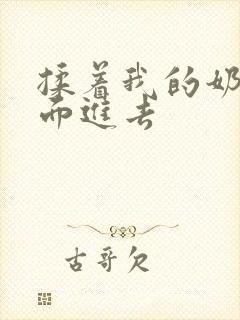 揉着我的奶
而進去
古哥欠